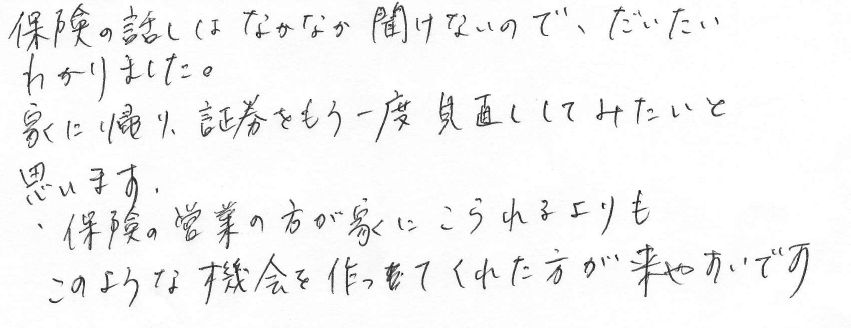 保険の話しはなかなか聞けないので、だいたい
わかりました。
家に帰り、証券をもう一度見直ししてみたいと
思います.
・保険の営業の方が家にこられるよりも
このような機会を作ってくれた方が来やすいです